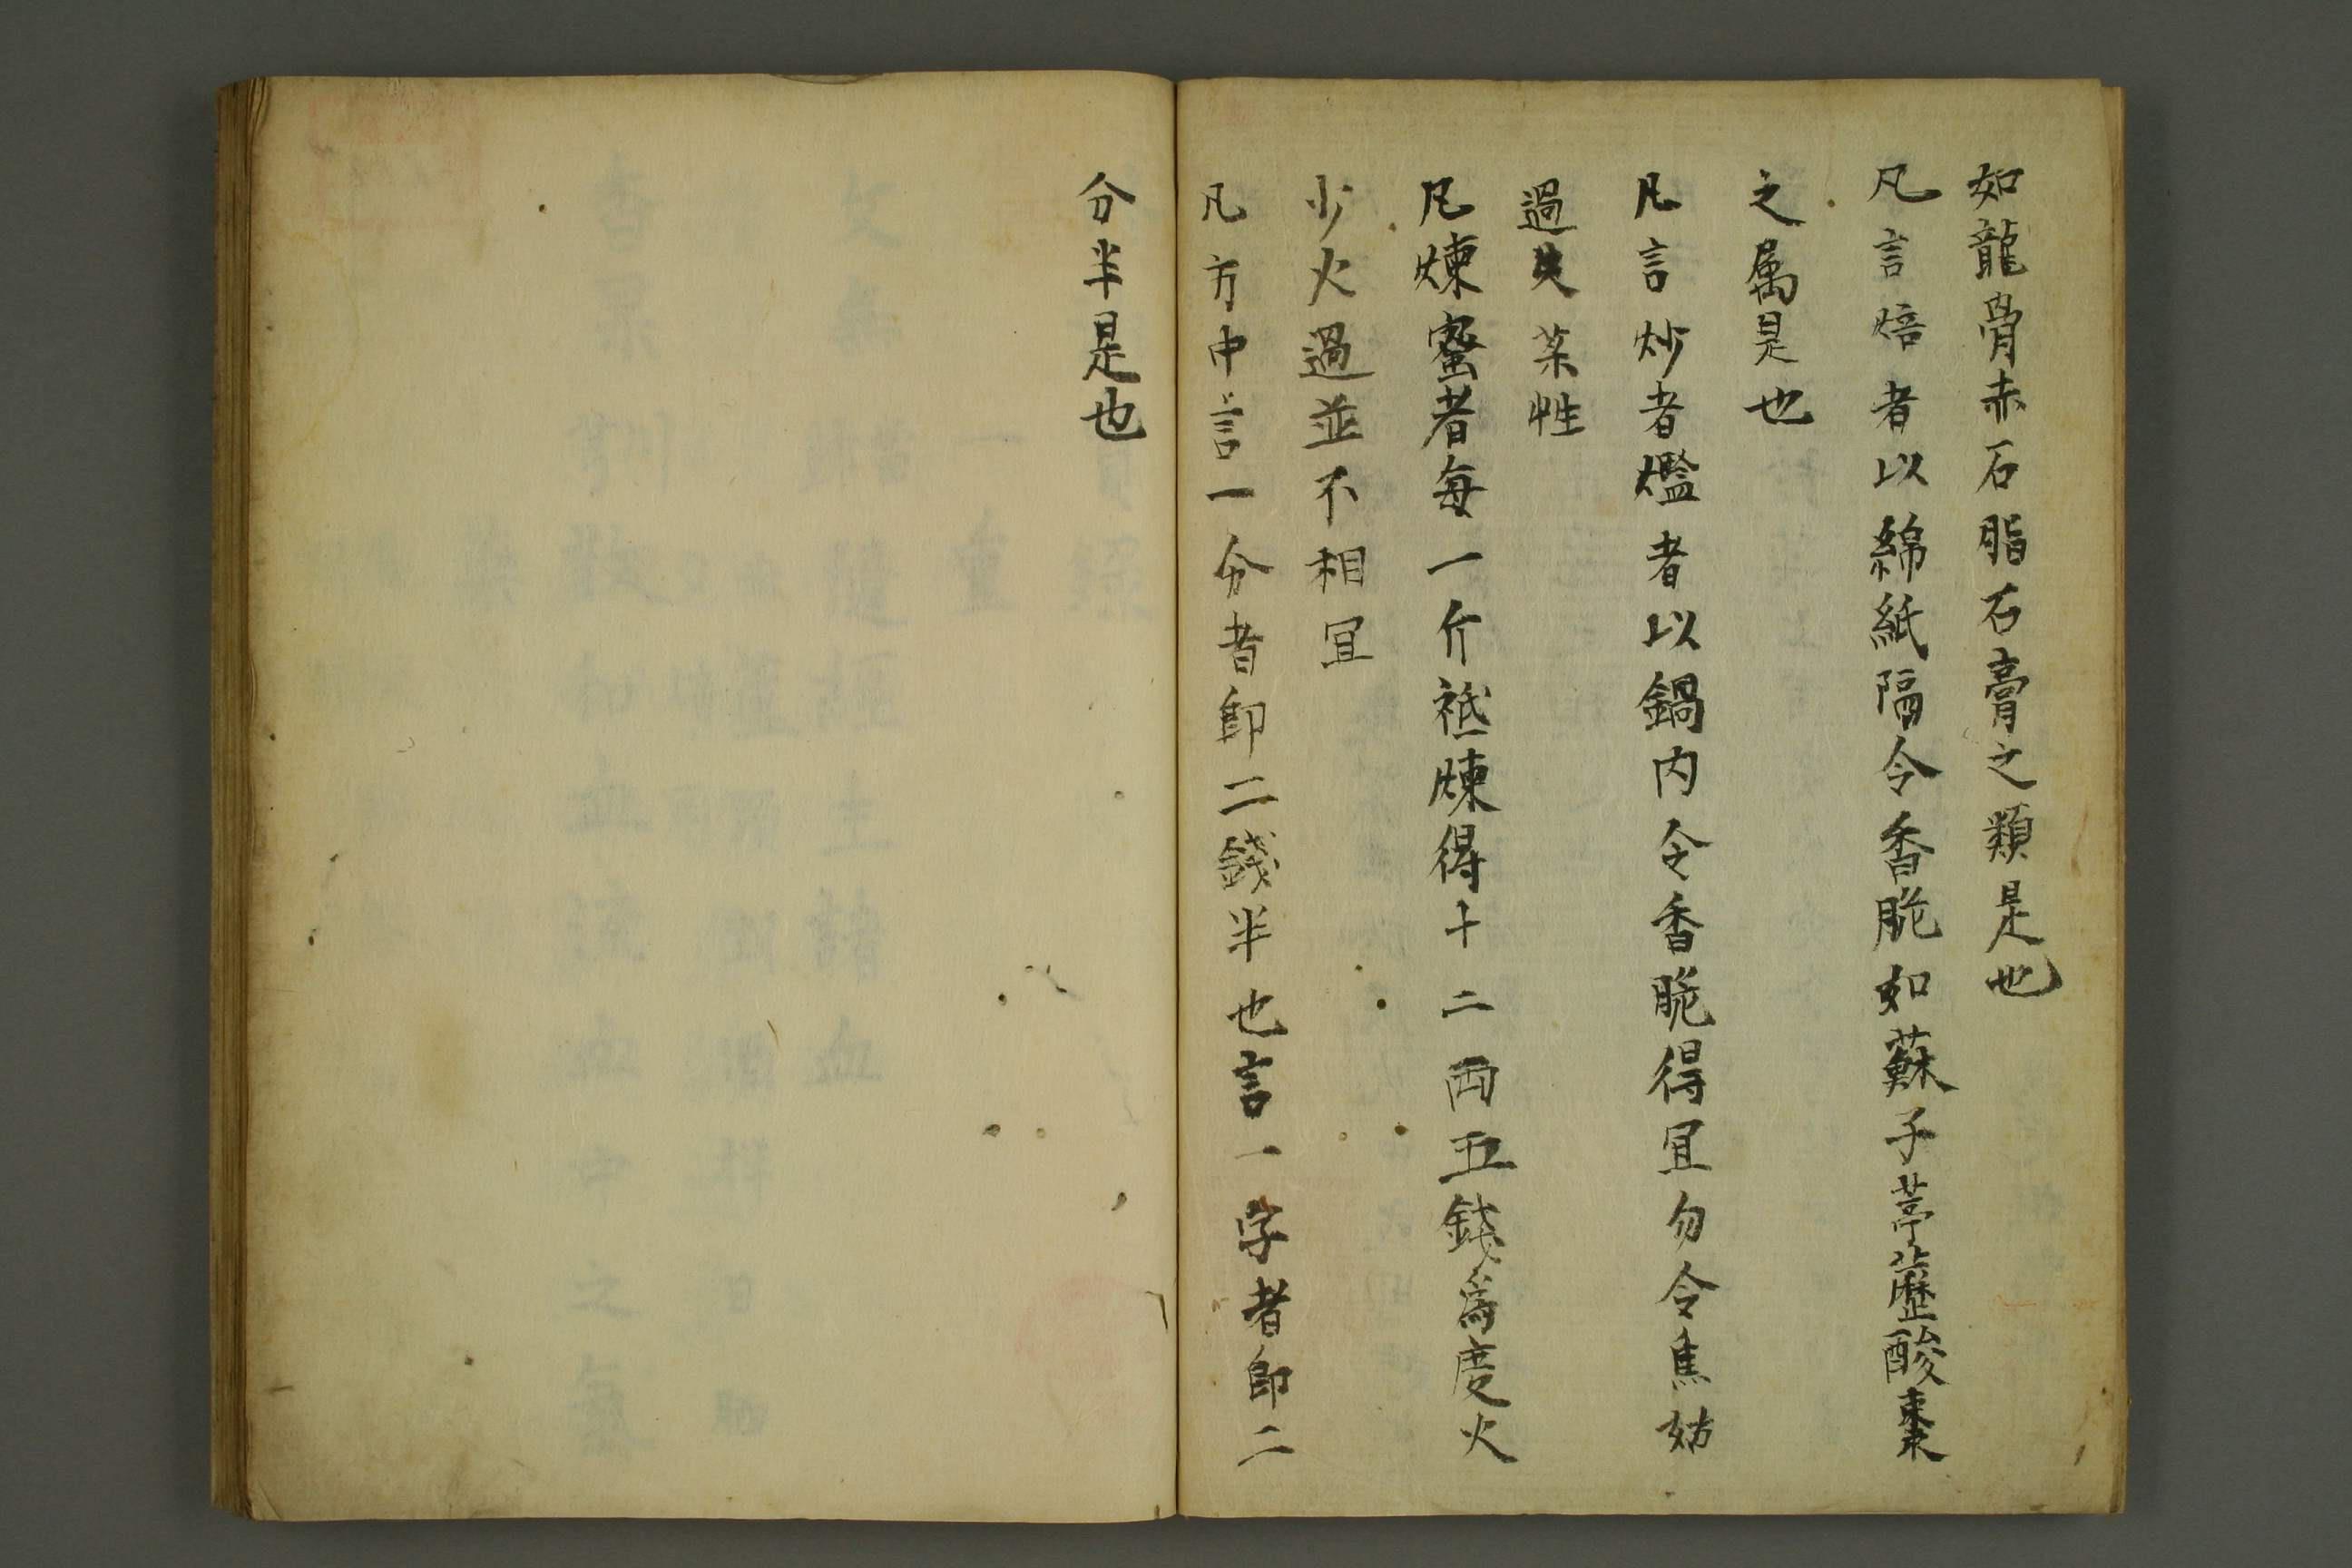 如龍骨赤石脂石膏之類是也
凡言焙者以綿紙隔令香脆如蘇子葶藶酸棗
之属是也
凡言炒者爁者以鍋内令香脆得冝勿令焦妨
過失薬性
凡煉蜜者每一斤秪煉得十二両五錢爲度火
少火過並不相冝
凡方中言一分者即二錢半也言一字者即二
分半是也